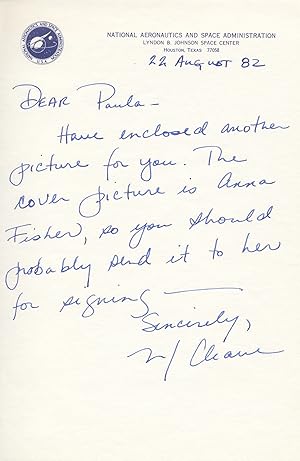 NATIONAL AERONAUTICS AND SPACE ADMINISTRATION
LYNDON B. JOHNSON SPACE CENTER
HOUSTON, TEXAS 77058
22 AUGUST 82
DEAR Paula -
Have enclosed another
picture for you. The
cover picture is Anna
Fisher, so you should
probably send it to her
for signing —
Sincerely,
M Cleave